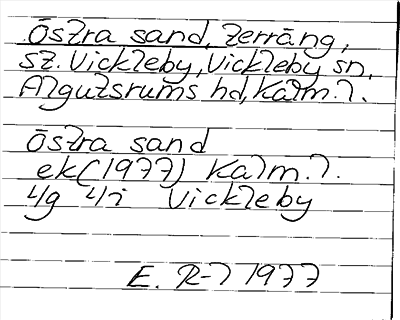 Östra sand, terräng,
sz. Vickleby, Vickleby sn,
Algutsrums hd, Kalm. l.
Östra sand
ek (1977) Kalm. l.
4g 4i Vickleby
E. R-l 1977